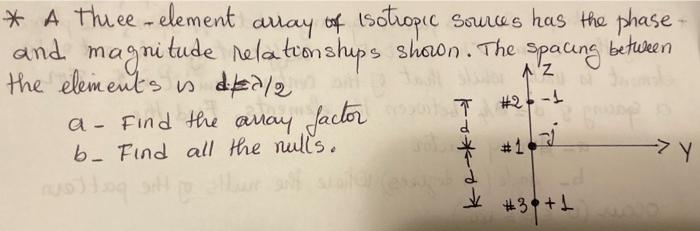 * A Three-element array of isotropic sources has the phase
and magnitude relationships shown. The spacing between
the elements is d=λ/2
a- Find the array factor
b- Find all the nulls.
Z
#2 -1
d
#1 -j
Y
d
#3 +1